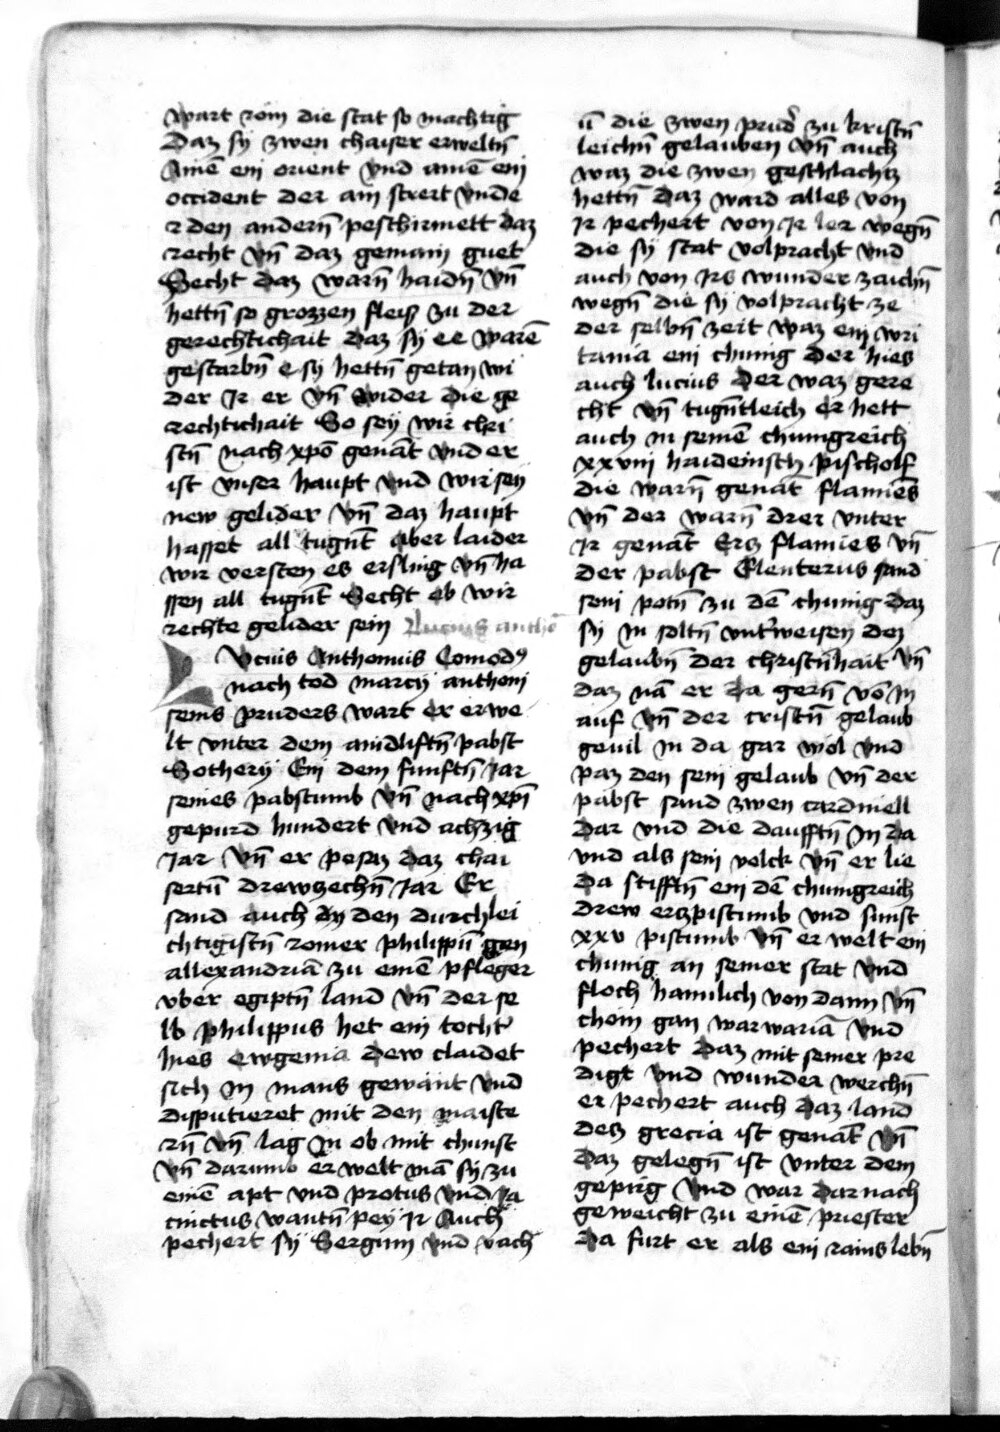 wart rom die stat so machtig
Daz sy zwen chaiser erweltn̄
Ainē ein orient vnd ainē ein
occident der ain stert vnde
r den andern̄ peschirmett daz
recht vn̄ daz gemain guet
Secht daz warn̄ haidn̄ vn̄
hettn̄ so grozzen fleiss zu der
gerechtichait Daz sy ee warē
gestarbn̄ e sy hettn̄ getan wi
der Ir er vn̄ wider die ge
rechtichait So sey wir chri
stn̄ nach xpo genāt vnd er
ist vnser haupt vnd wir sey
new gelider vn̄ daz haupt
hasset all tugn̄t aber laider
wir versten es ersling vn̄ ha
ssen all tugn̄t Secht ob wir
rechte gelider sein Lucius antho
Lvcius Anthonius Comodꝰ
nach tod marcij anthoni
seins pruders wart er erwe
lt vnter dem aindliftn̄ pabst
Sotherij Ein dem funftn̄ Jar
seines pabstumb vn̄ nach xpī
gepurd hundert vnd achzig
Jar vn̄ er pesaz daz chai
sertū drewzechn̄ Jar Er
sand auch den durchlei
chtigistn̄ romer philippū gen
allexandriā zu einē pfleger
vber egiptn̄ land vn̄ der se
lb philippus het ein tochtr̄
hies ewgenia dew claidet
sich in mans gewant vnd
disputieret mit den maiste
rn̄ vn̄ lag In ob mit chunst
vn̄ darumb erwelt mā sy zu
einē apt vnd protus vnd Ja
cinctus wantn̄ pey Ir Auch
pechert sy Sergium vnd vach
ū die zwen prudr̄ zu kristn̄
leichn̄ gelauben vn̄ auch
waz die zwen geschlachtz
hettn̄ Daz ward alles von
Ir pechert von Ir ler wegn̄
die sy stat volpracht vnd
auch von Irs wunder zaichn̄
wegn̄ die sy volpracht ze
der selbn̄ zeit waz ein wri
tania ein chunig der hies
auch lucius der waz gere
cht vn̄ tugn̄tleich er hett
auch in seinē chunigreich
xxviii haideinisch pischolf
die warn̄ genāt flamiēs
vn̄ der warn̄ drer vnter
Ir genāt Erz flamies vn̄
der pabst Elenterus sand
sein potn̄ zu dē chunig daz
sy In soltn̄ vntr̄weisen den
gelaubn̄ der christn̄hait vn̄
daz nā er da gern̄ vō In
auf vn̄ der cristn̄ gelaub
geuil In da gar wol vnd
paz den sein gelaub vn̄ der
pabst sand zwen cardinell
dar vnd die daufftn̄ In da
vnd als sein volck vn̄ er lie
da stifftn̄ ein dē chunigreich
drew erzpistumb vnd sunst
xxv pistumb vn̄ er welt ein
chunig an seiner stat vnd
floch haimlich von dann vn̄
chom gan warwariā vnd
pechert daz mit seiner pre
digt vnd wunder werchn̄
er pechert auch daz land
dez grecia ist genāt vn̄
daz gelegn̄ ist vnter dem
gepirg vnd war darnach
geweicht zu einē priester
da furt er als ein rains lebn̄